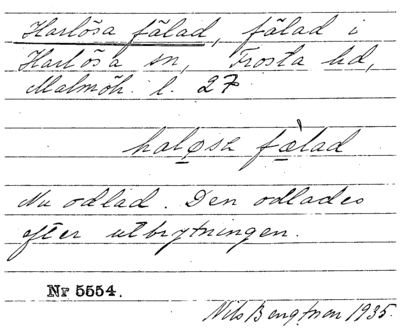 Harlösa fälad, fälad i
Harlösa sn, Frosta hd,
Malmöh. l. 27
haløsa fælad
Nu odlad. Den odlades
efter utbrytningen.
Nr 5554.
Nils Bengtson 1935.